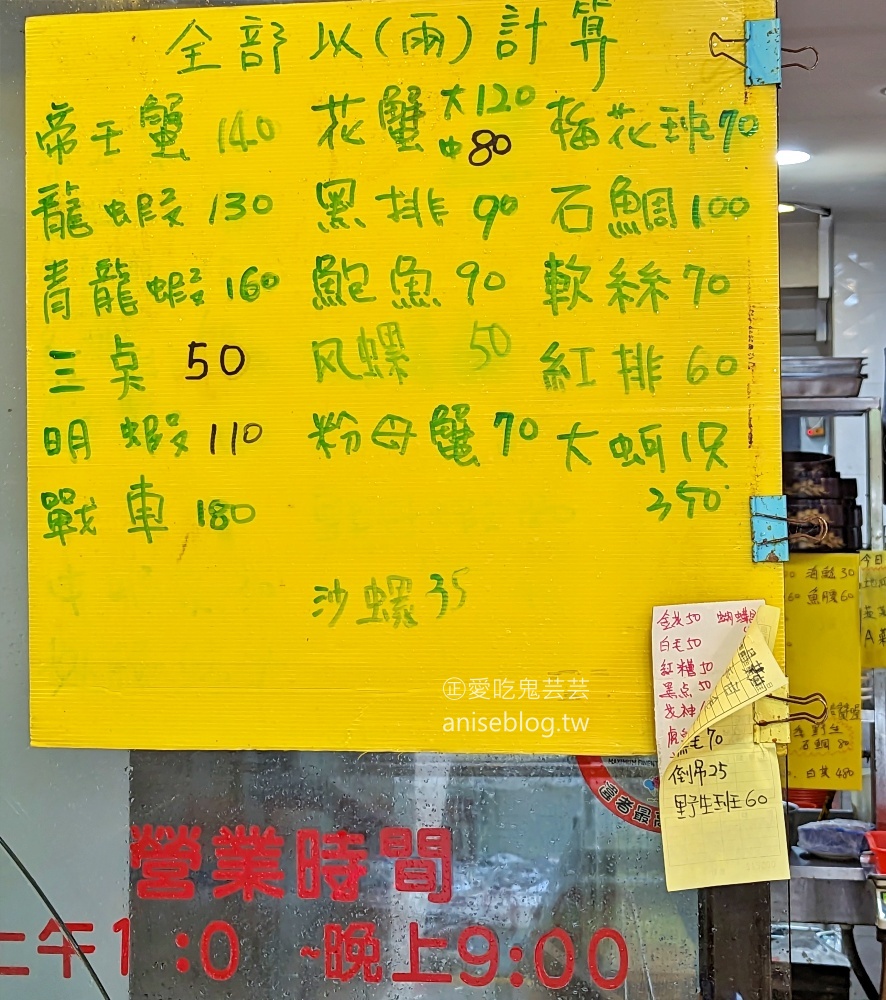 全部以(兩)計算
帝王蟹 140
龍蝦 130
青龍蝦 160
三点 50
明蝦 110
戰車 180
花蟹 大120
中80
黑排 90
鮑魚 90
风螺 50
粉母蟹 70
沙螺 35
梅花班 70
石鯛 100
軟絲 70
紅排 60
大蚵1只
350
白毛50
紅糟50
黑点50
毛70
倒吊25
野生班60
海鱺30
魚腰60
野生
石鯛 80
480
今日
㊣愛吃鬼芸芸
aniseblog.tw
營業時間
上午1 :0 ~晚上9:00